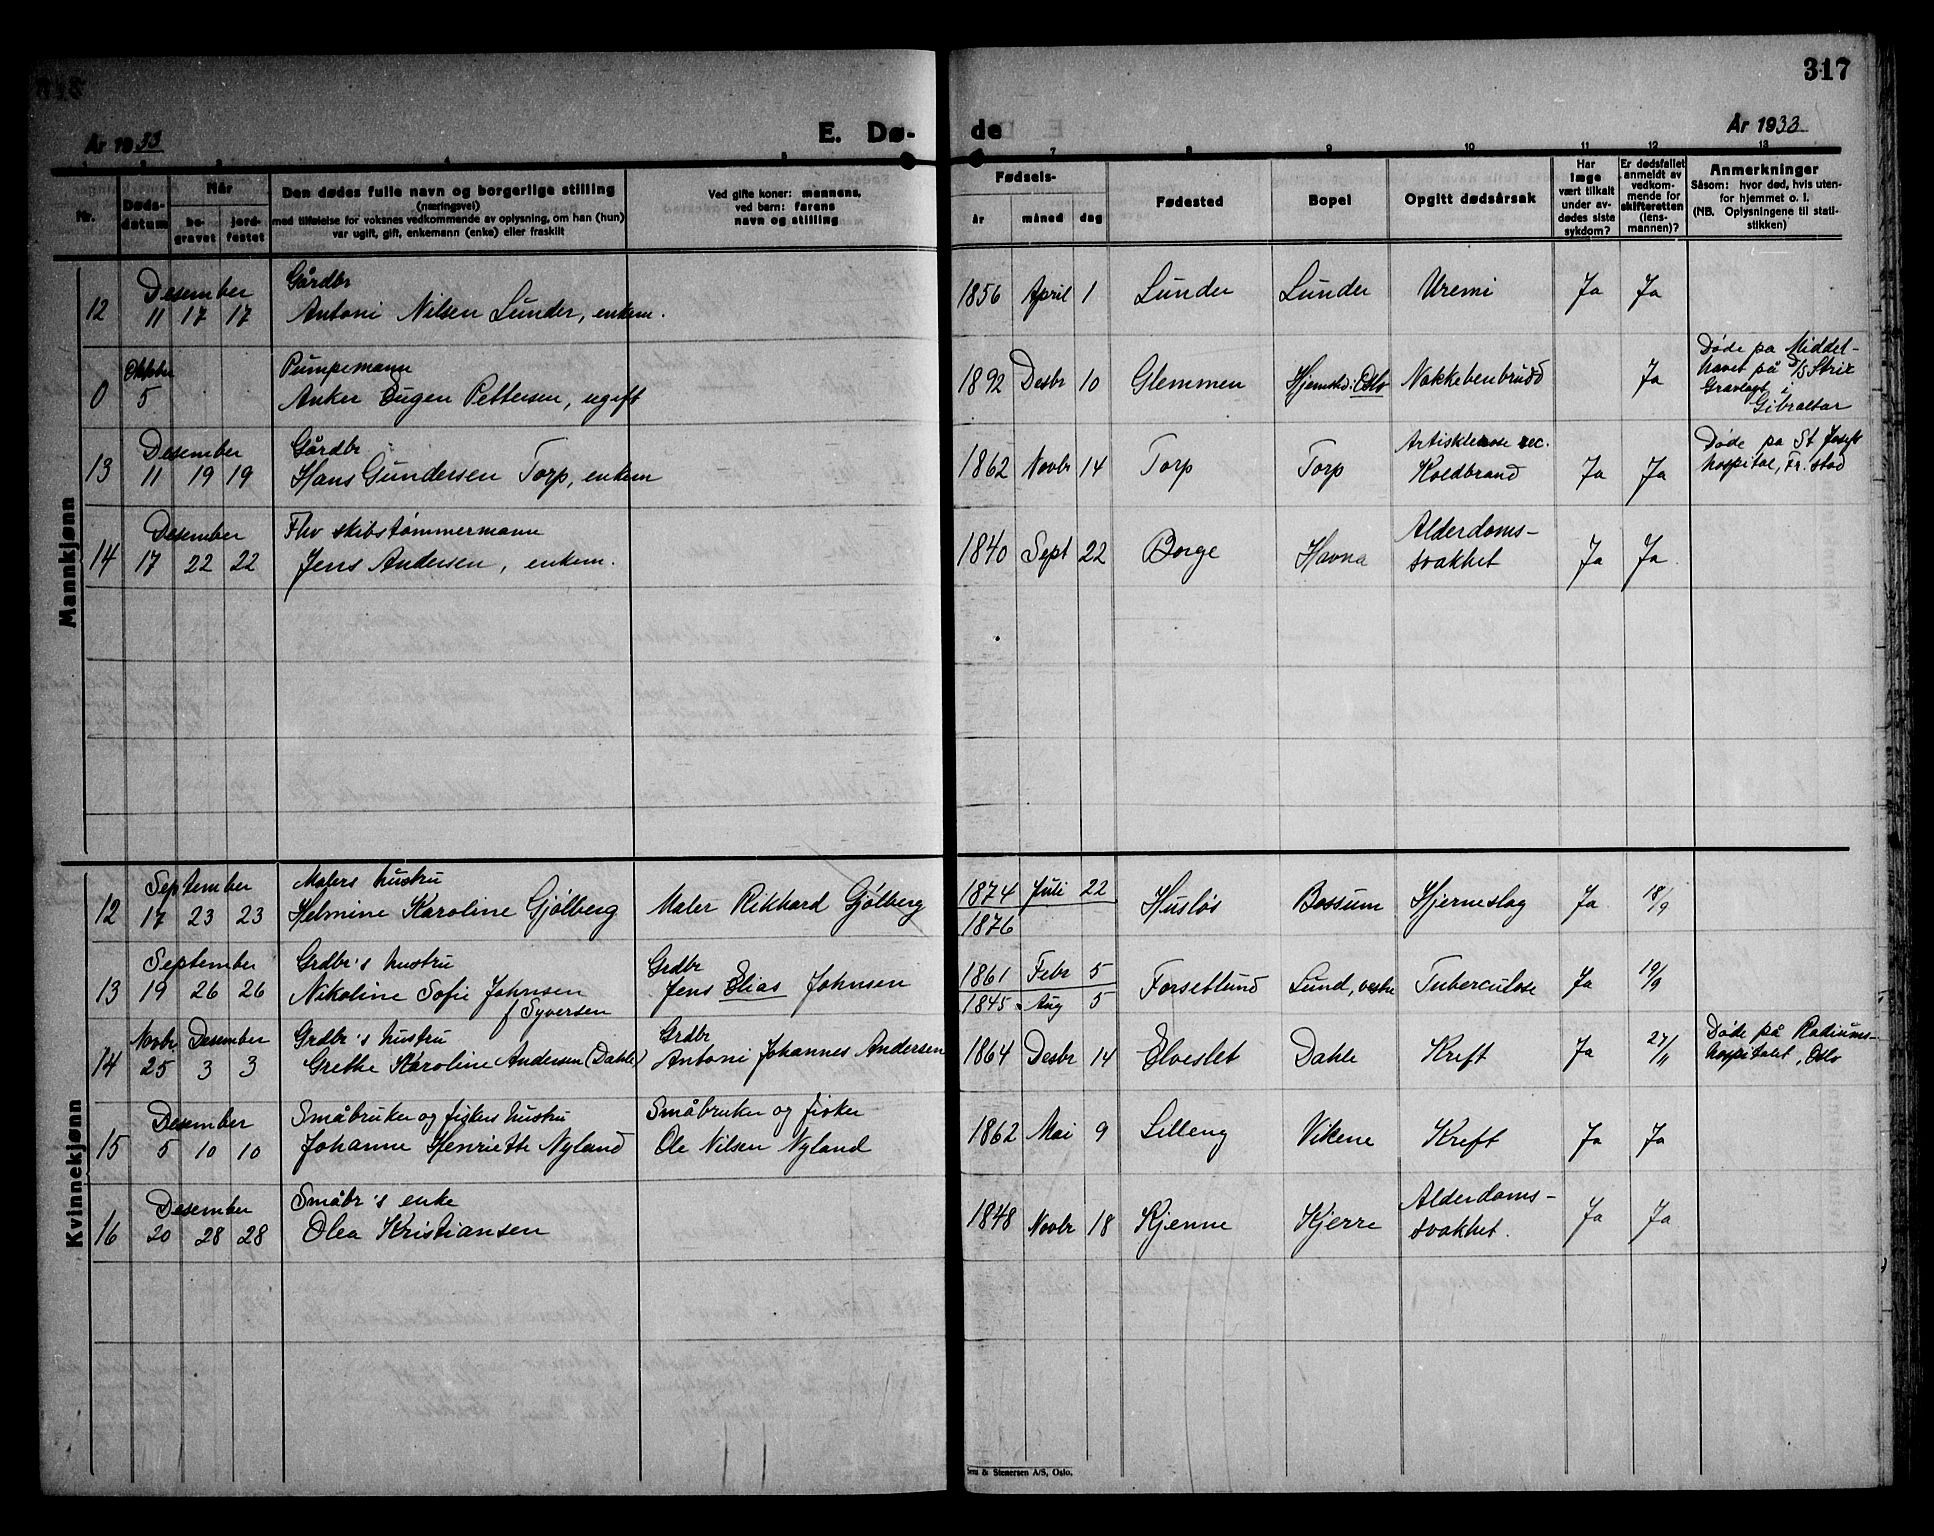 317
År 1933
E. Dø-
de
År 1933
7 8 9 10 11 12 13
Nr.
Døds-
datum
Når
be-
gravet
jord-
festet
Den dødes fulle navn og borgerlige stilling
(næringsvei)
med tilføielse for voksnes vedkommende av oplysning, om han (hun)
var ugift, gift, enkemann (enke) eller fraskilt
Ved gifte koner: mannens,
ved barn: farens
navn og stilling
Fødsels-
år måned dag
Fødested
Bopel
Opgitt dødsårsak
Har
læge
vært tilkalt
under av-
dødes siste
sykdom?
Er dødsfallet
anmeldt av
vedkom-
mende for
skifteretten
(lens-
mannen)?
Anmerkninger
Såsom: hvor død, hvis uten-
for hjemmet o. l.
(NB. Oplysningene til stati-
stikken)
Mannkjønn
Desember Gårdbr
12 11 17 17 Antoni Nilsen Lunder, enkem. 1856 April 1 Lunder Lunder Uremi Ja Ja
Oktober Pumpemann
0 5 Anker Eugen Pettersen, ugift 1892 Desbr 10 Glemmen Hjemsted: Oslo Nakkebenbrudd Ja
Døde på Middel-
havet på D/S Strix
Gravlagt i
Gibraltar
Desember Gårdbr
13 11 19 19 Hans Gundersen Torp, enkem 1862 Novbr 14 Torp Torp
Koldbrand Ja Ja
Døde på St Josefs
hospital, Fr.stad
Desember Fhv skibstømmermann
14 17 22 22 Jens Andersen, enkem. 1840 Sept 22 Borge Havna
Alderdoms-
svakhet Ja Ja.
Kvinnekjønn
September Malers hustru
12 17 23 23 Helmine Karoline Gjølberg Maler Rikhard Gjølberg 1874 Juli 22 Husløs Bossum Hjerneslag Ja 18/9
1876
September Grdbr's hustru Grdbr
13 19 26 26 Nikoline Sofie Johnsen Jens Elias Johnsen 1861 Febr 5 Forsetlund Lund, vestre Tuberculose Ja 19/9
f Syversen 1845 Aug 5
Novbr Desember Grdbr's hustru Grdbr
14 25 3 3 Grethe Karoline Andersen (Dahle) Antoni Johannes Andersen 1864 Desbr 14 Elveslet Dahle Kreft Ja 27/11
Døde på Radiums-
hospitalet, Oslo
Desember Småbruker og fiskers hustru Småbruker og fisker
15 5 10 10 Johanne Henriette Nyland Ole Nilsen Nyland 1862 Mai 9 Lilleng Vikene Kreft Ja Ja
Desember Småbr's enke
16 20 28 28 Olea Kristiansen 1848 Novbr 18 Kjenne Kjerre
Alderdoms-
svakhet. Ja Ja
& Stenersen A/S, Oslo.